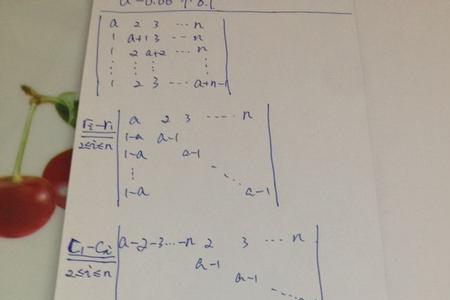 a 2 3 ... n
1 a+1 3 ... n
1 2 a+2 ... n
⋮ ⋮ ⋮ ⋮
1 2 3 ... a+n-1
ri-r1
2≤i≤n
a 2 3 .... n
1-a a-1
1-a a-1
⋮ ...
1-a a-1
C1-Ci
2≤i≤n
a-2-3...-n 2 3 ... n
a-1
a-1